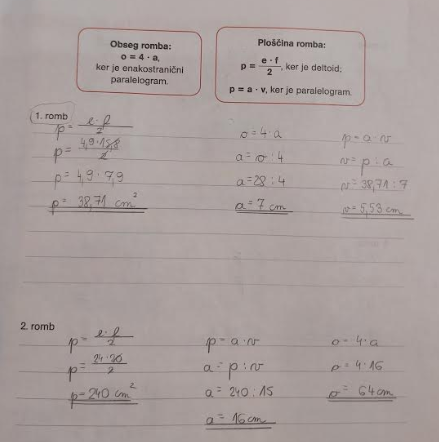 Obseg romba:
o = 4 · a,
ker je enakostranični
paralelogram.
Ploščina romba:
p = e · f / 2, ker je deltoid;
p = a · v, ker je paralelogram.
1. romb
p = e · f / 2
p = 4,9 · 15,8 / 2
p = 4,9 · 7,9
p = 38,71 cm²
o = 4 · a
a = o : 4
a = 28 : 4
a = 7 cm
p = a · v
v = p : a
v = 38,71 : 7
v = 5,53 cm
2. romb
p = e · f / 2
p = 24 · 20 / 2
p = 240 cm²
p = a · v
a = p : v
a = 240 : 15
a = 16 cm
o = 4 · a
o = 4 · 16
o = 64 cm